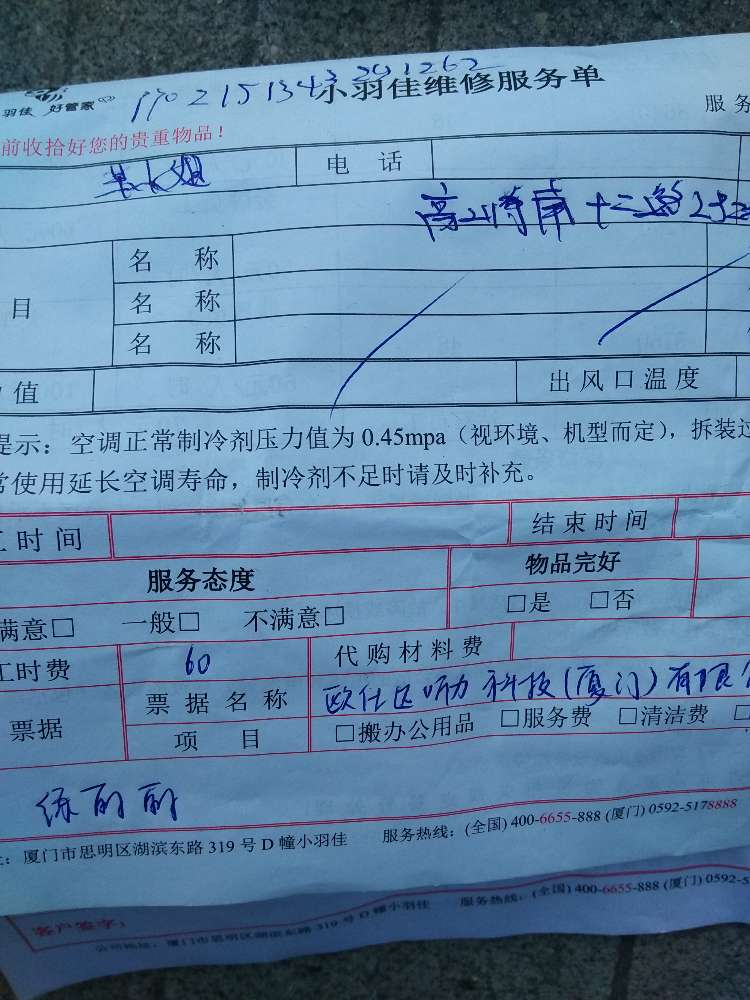 羽佳 好管家
小羽佳维修服务单
服务
前收拾好您的贵重物品！
电 话
名 称
目 名 称
名 称
值 出风口温度
提示：空调正常制冷剂压力值为 0.45mpa（视环境、机型而定），拆装过
常使用延长空调寿命，制冷剂不足时请及时补充。
工时间 结束时间
服务态度 物品完好
满意□ 一般□ 不满意□ □是 □否
工时费 60 代购材料费
票据 票据名称 科技(厦门)有限
项 目 □搬办公用品 □服务费 □清洁费 □
丽丽
址：厦门市思明区湖滨东路 319 号 D 幢小羽佳 服务热线：(全国) 400-6655-888 (厦门) 0592-5178888
服务热线：(全国) 400-6655-888 (厦门) 0592-5
客户签字：
公司地址：厦门市思明区湖滨东路 319 号 D 幢小羽佳